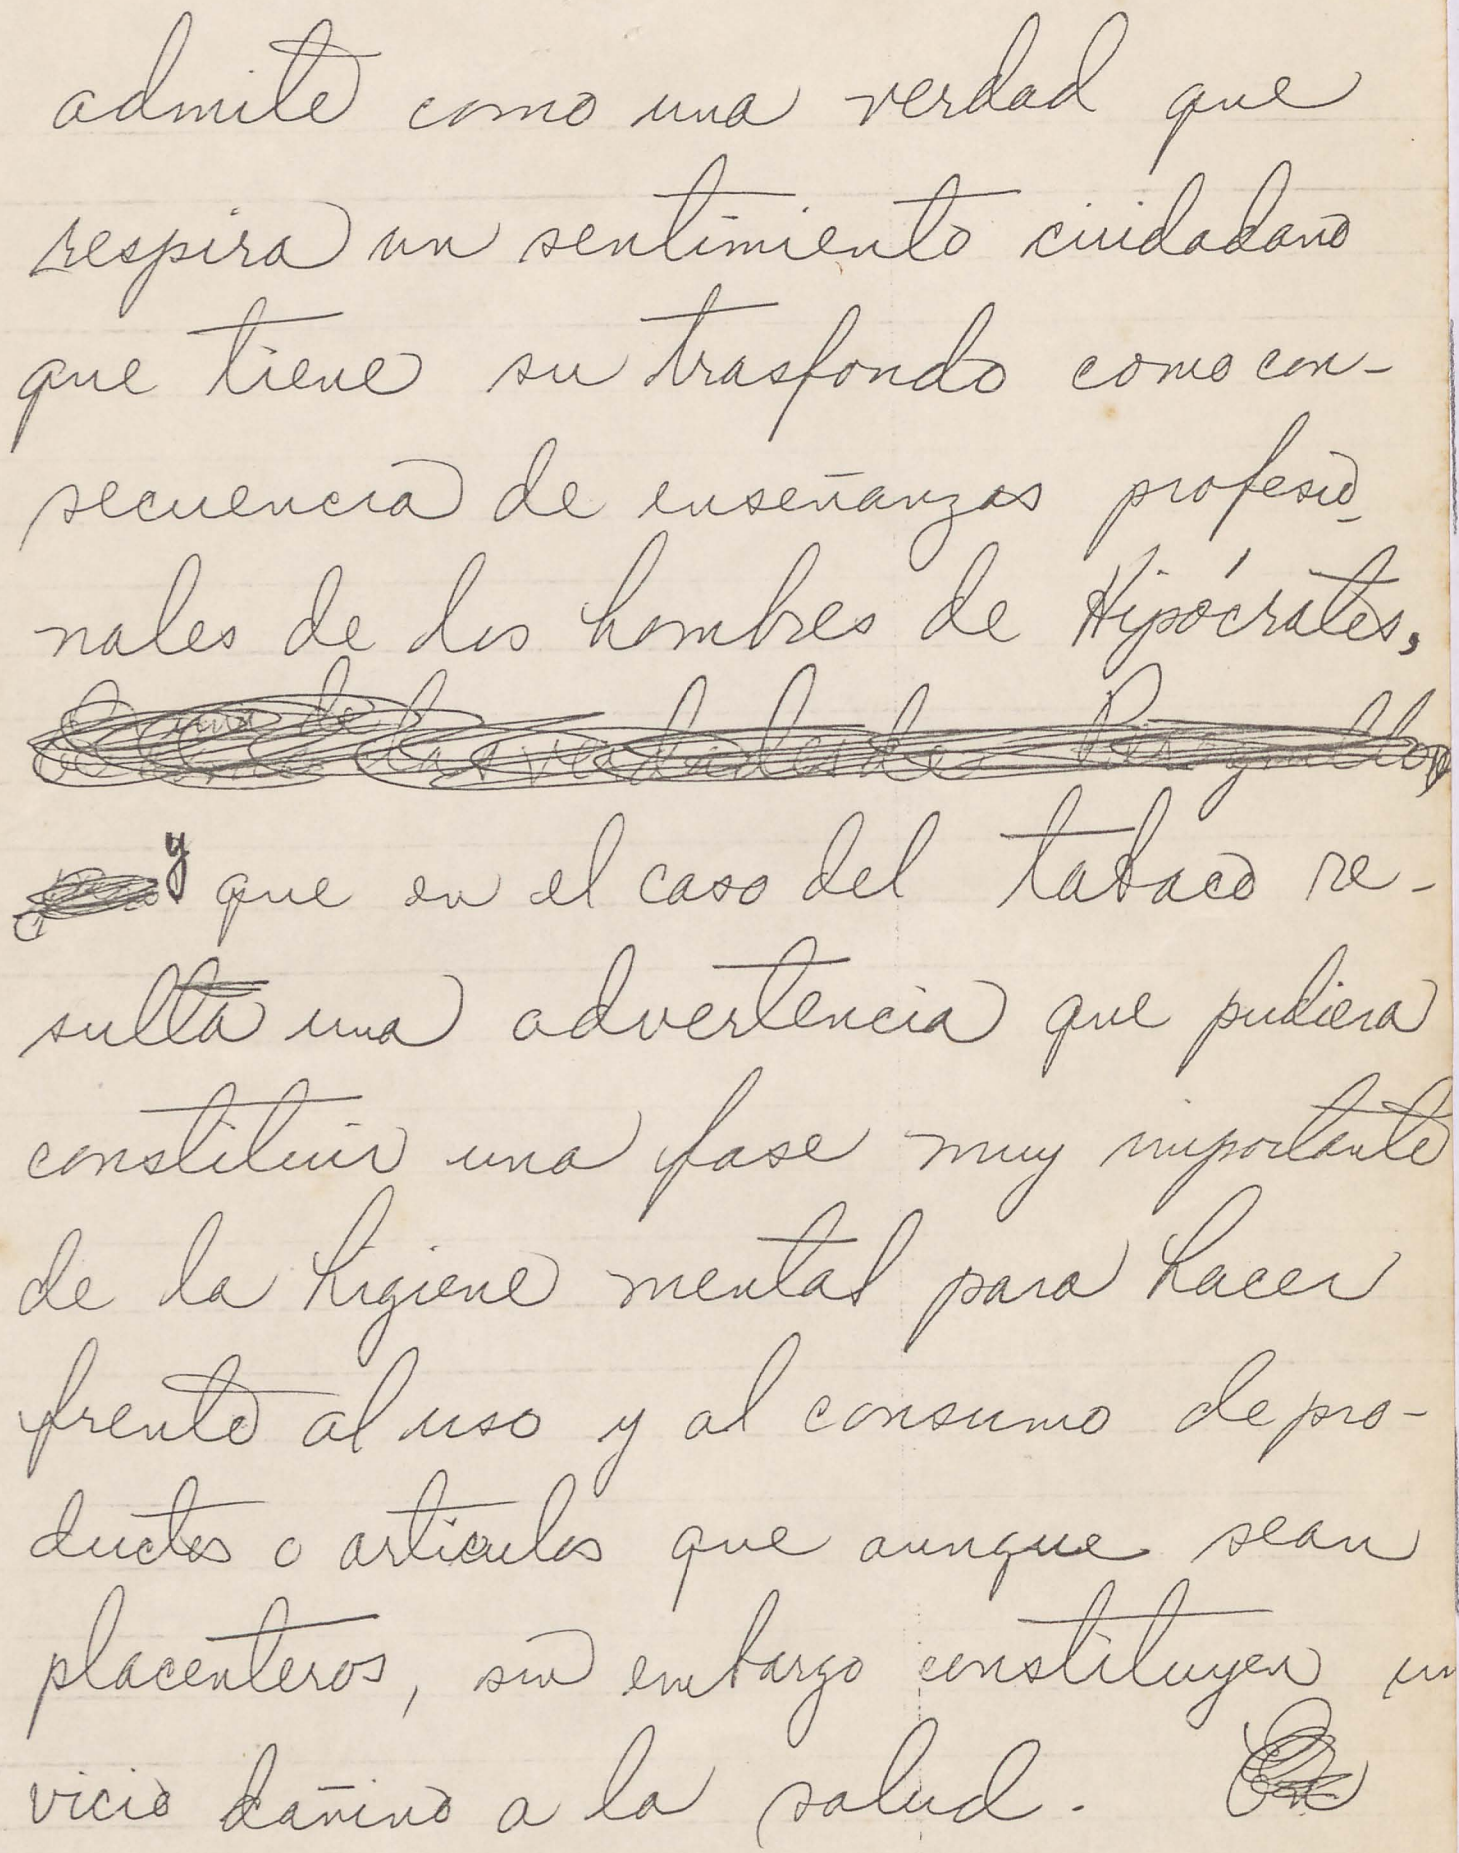 admite como una verdad que
respira un sentimiento ciudadano
que tiene su trasfondo como con-
secuencia de enseñanzas profesio-
nales de los hombres de Hipócrates,
y que en el caso del tabaco re-
sulta una advertencia que pudiera
constituir una fase muy importante
de la higiene mental para hacer
frente al uso y al consumo de pro-
ductos o articulos que aunque sean
placenteros, sin embargo constituyen un
vicio dañino a la salud.